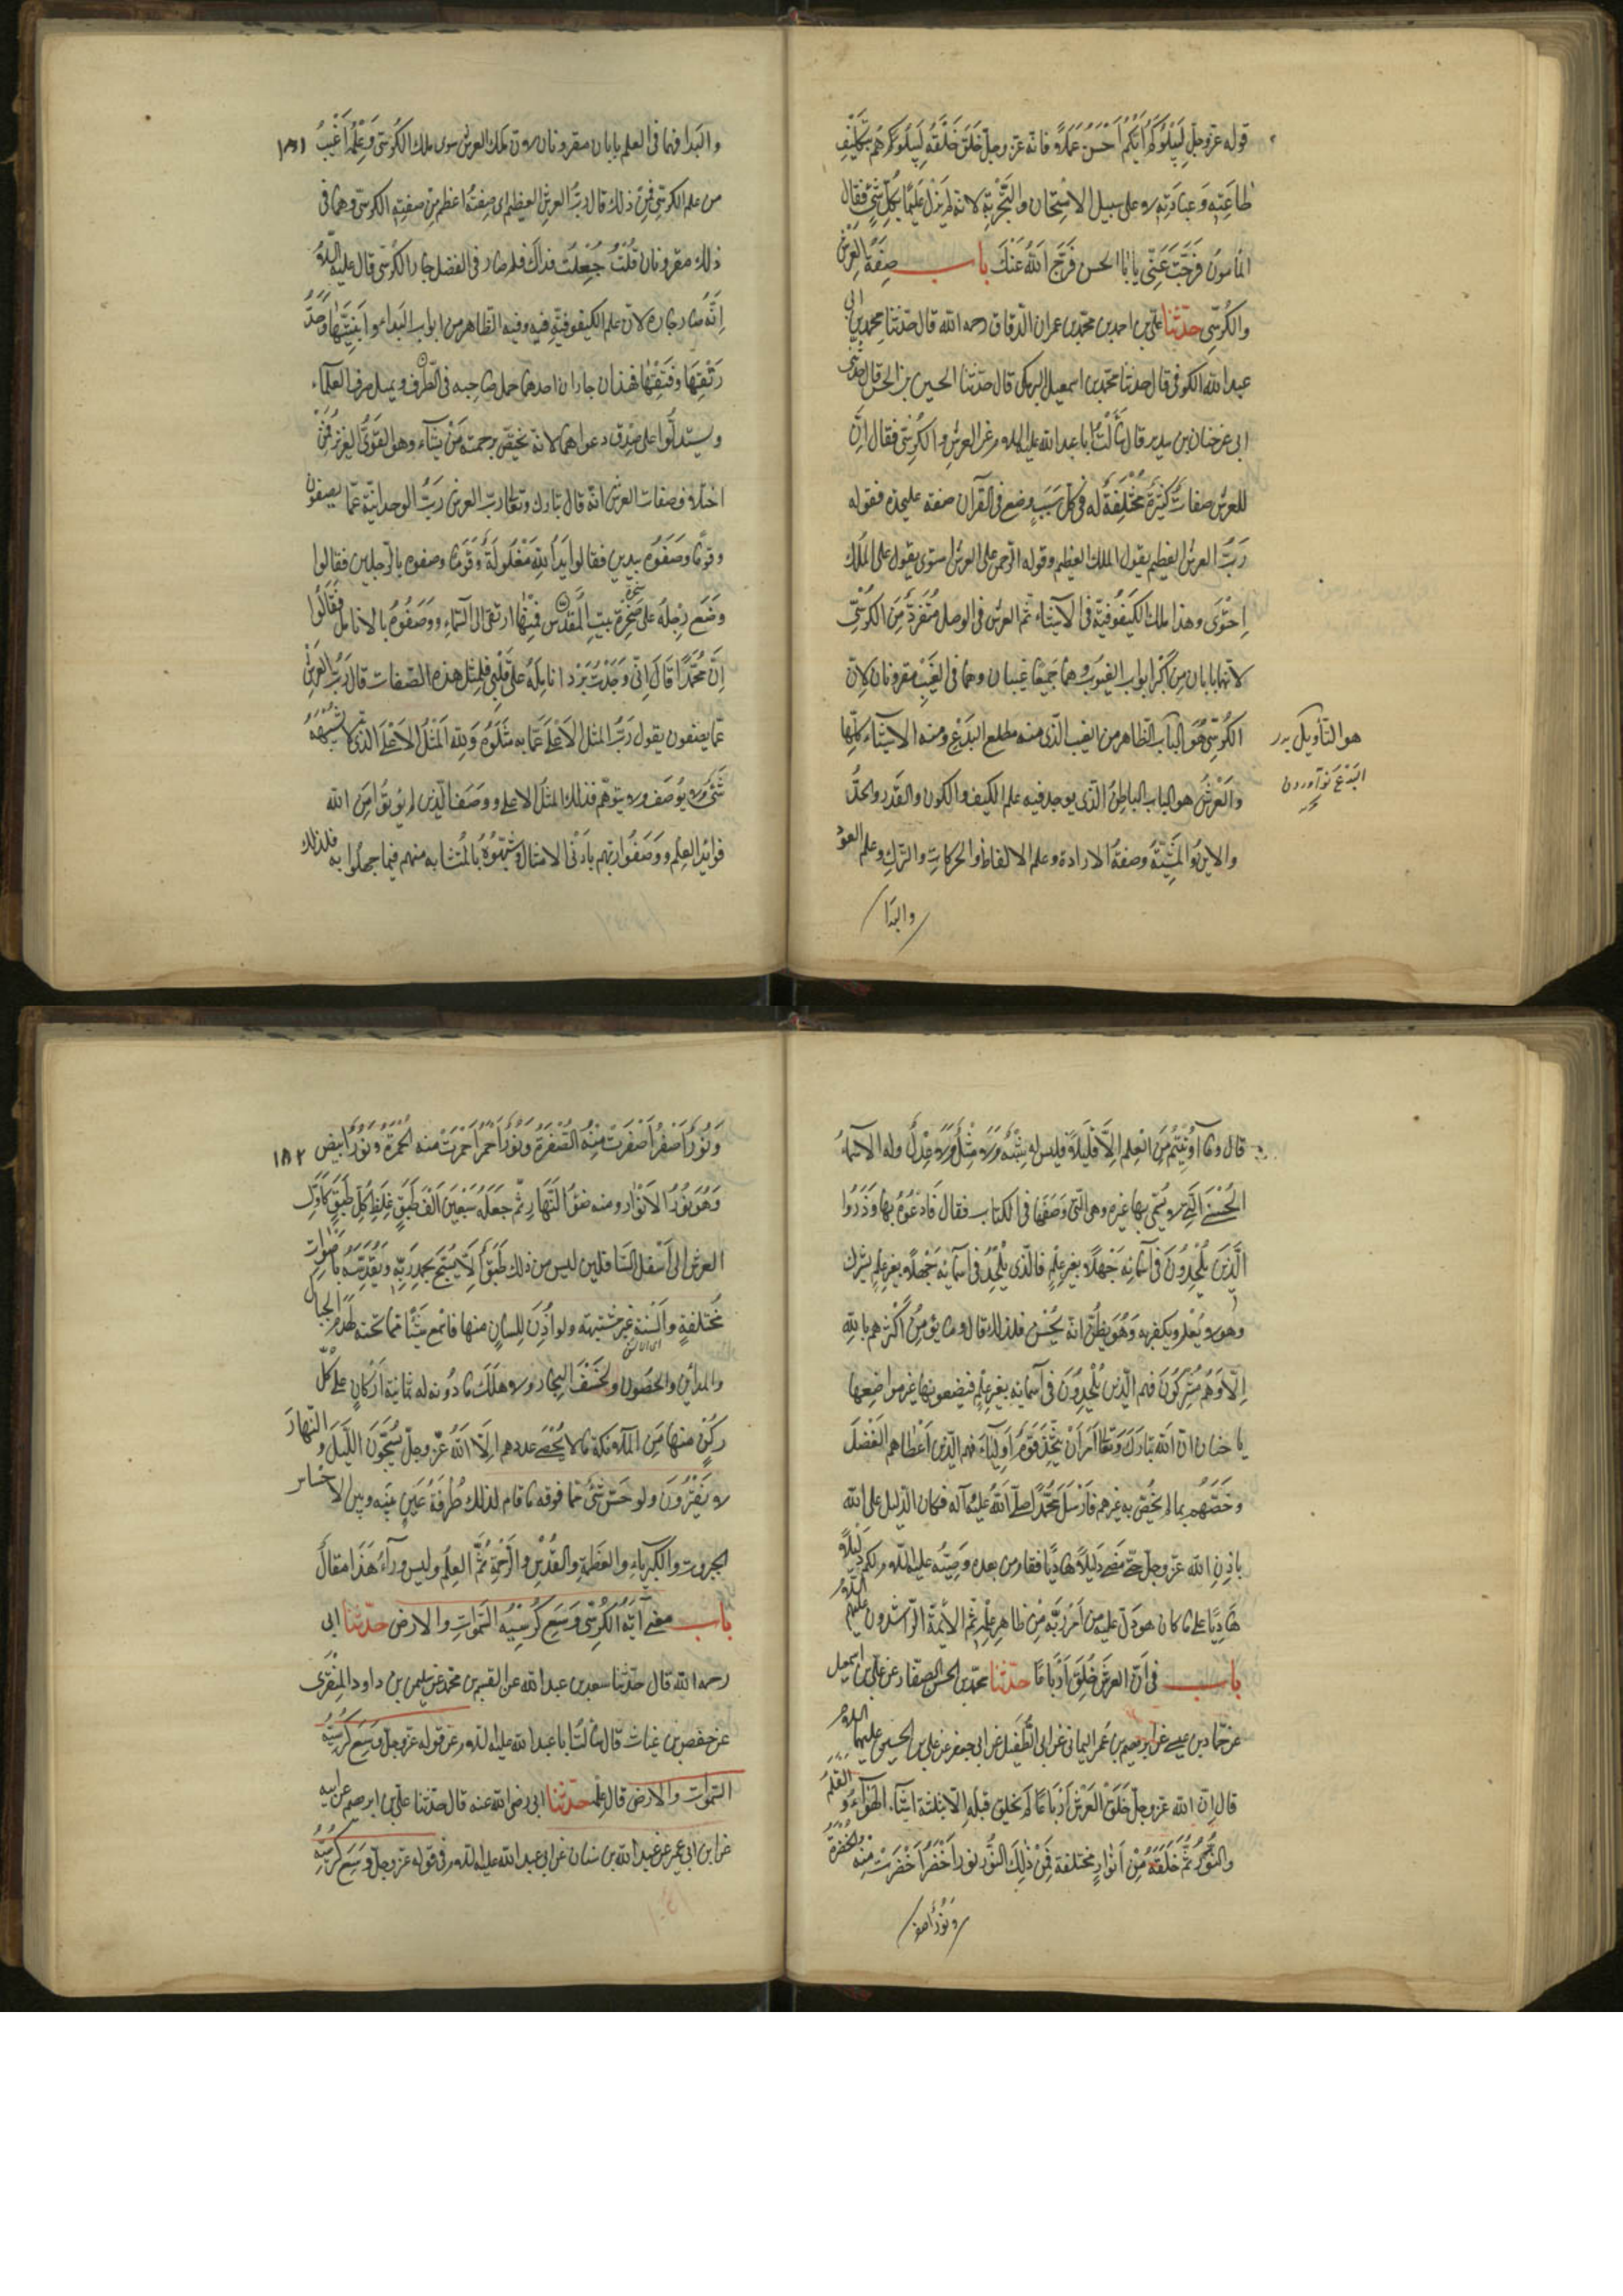 قوله عزوجل لِيَبْلُوَكُمْ أَيُّكُمْ أَحْسَنُ عَمَلًا فانه عز وجل خلق خلقه ليبلوكم بتكليف
طاعته وعبادته لا على سبيل الامتحان والتجربة لانه لم يزل عليما بكل شئ فقال
المأمون فرجت عني يا ابا الحسن فرج الله عنك باب صفة العرش
والكرسي حدثنا علي بن احمد بن محمد بن عمران الدقاق رحمه الله قال حدثنا محمد بن ابي
عبد الله الكوفي قال حدثنا محمد بن اسمعيل البرمكي قال حدثنا الحسين بن الحسن قال حدثني
ابي عن حنان بن سدير قال سألت ابا عبد الله عليه السلام عن العرش والكرسي فقال ان
للعرش صفات كثيرة مختلفة له في كل سبب وضع في القرآن صفة عليحدة فقوله
رب العرش العظيم يقول الملك العظيم وقوله الرحمن على العرش استوى يقول على الملك
احتوى وهذا ملك الكيفوفية في الاشياء ثم العرش في الوصل متفرد من الكرسي
لانهما بابان من اكبر ابواب الغيوب وهما جميعا غيبان وهما في الغيب مقرونان لان
الكرسي هو الباب الظاهر من الغيب الذي منه مطلع البدع ومنه الاشياء كلها
هو التأويل
البدع نو آوردن
والعرش هو الباب الباطن الذي يوجد فيه علم الكيف والكون والقدر والحد
والاين والمشية وصفة الارادة وعلم الالفاظ والحركات والترك وعلم العود
والبدا
والبدا فهما في العلم بابان مقرونان لان ملك العرش سوى ملك الكرسي وعلمه اغيب ١٨١
من علم الكرسي فمن ذلك قال رب العرش العظيم اي صفته اعظم من صفة الكرسي وهما في
ذلك مقرونان قلت جعلت فداك فلم صار في الفضل جار الكرسي قال عليه السلام
انه صار جاره لان علم الكيفوفية فيه وفيه الظاهر من ابواب البداء وابنيتها وحد
رتقها وفتقها فهذان جاران احدهما حمل صاحبه في الظرف وبمثل صرف العلماء
وليستدلوا على صدق دعواهما لانه يختص برحمته من يشاء وهو القوي العزيز فمن
اختلاف صفات العرش انه قال تبارك وتعالى رب العرش رب الوحدانية عما يصفون
وقوما وصفوه بيدين فقالوا يد الله مغلولة وقوما وصفوه بالرجلين فقالوا
وضع رجله على صخرة بيت المقدس فمنها ارتقى الى السماء ووصفوه بالانامل فقالوا
ان محمدا قال اني وجدت برد انامله على قلبي فلمثل هذه الصفات قال رب العرش
عما يصفون يقول رب المثل الاعلى عما به مثلوه ولله المثل الاعلى الذي لا يشبهه
شئ ولا يوصف ولا يتوهم فذلك المثل الاعلى ووصف الذين لم يؤتوا من الله
فوائد العلم ووصفوا ربهم بادنى الامثال وشبهوه بالمتشابه منهم فيما جهلوا به فلذلك
قال وما أوتيتم من العلم إلا قليلا فليس له شبه ولا مثل ولا عدل وله الاسماء
الحسنى التي لا يسمى بها غيره وهي التي وصفها في الكتاب فقال فادعوه بها وذروا
الذين يلحدون في اسمائه جهلا بغير علم فالذي يلحد في اسمائه جهلا بغير علم يشرك
وهو لا يعلم ويكفر به وهو يظن انه يحسن فلذلك قال وما يؤمن اكثرهم بالله
الا وهم مشركون فهم الذين يلحدون في اسمائه بغير علم فيضعونها غير مواضعها
يا حنان ان الله تبارك وتعالى امر ان يتخذ قوم اولياء فهم الذين اعطاهم الفضل
وخصهم بما لم يخص به غيرهم فارسل محمدا صلى الله عليه وآله فكان الدليل على الله
باذن الله عز وجل حتى مضى دليلا هاديا فقام من بعده وصيه عليه السلام دليلا
هاديا على ما كان هو دل عليه من امر ربه من ظاهر علمه ثم الائمة الراشدون عليهم السلام
باب في ان العرش خلق ارباعا حدثنا محمد بن الحسن الصفار عن علي بن اسمعيل
عن حماد بن عيسى عن ابرهيم بن عمر اليماني عن ابي الطفيل عن ابي جعفر عن علي بن الحسين عليهما السلام
قال ان الله عز وجل خلق العرش ارباعا لم يخلق قبله الا ثلثة اشياء الهواء والقلم
والنور ثم خلقه من انوار مختلفة فمن ذلك النور نور اخضر اخضرت منه الخضرة
ونور اصفر
ونور اصفر اصفرت منه الصفرة ونور احمر احمرت منه الحمرة ونور ابيض ١٨٢
وهو نور الانوار ومنه ضوء النهار ثم جعله سبعين الف طبق غلظ كل طبق كاول
العرش الى اسفل السافلين ليس من ذلك طبق الا يسبح بحمد ربه ويقدسه باصوات
مختلفة والسنة غير مشتبهة ولو اذن للسان منها فاسمع شيئا مما تحته لهدم الجبال
والمدائن والحصون ولخسف البحار ولاهلك ما دونه له ثمانية اركان على كل
ركن منها من الملائكة ما لا يحصى عددهم الا الله عز وجل يسبحون الليل والنهار
لا يفترون ولو حس شئ مما فوقه ما قام لذلك طرفة عين بينه وبين الاحساس
الجبروت والكبرياء والعظمة والقدس والرحمة ثم العلم وليس وراء هذا مقال
باب معنى آية الكرسي وسع كرسيه السموات والارض حدثنا ابي
رحمه الله قال حدثنا سعد بن عبد الله عن القسم بن محمد عن سليمن بن داود المنقري
عن حفص بن غياث قال سألت ابا عبد الله عليه السلام عن قوله عز وجل وسع كرسيه
السموات والارض قال علمه حدثنا ابي رضي الله عنه قال حدثنا علي بن ابرهيم عن ابيه
عن ابن ابي عمير عن عبد الله بن سنان عن ابي عبد الله عليه السلام في قوله عز وجل وسع كرسيه